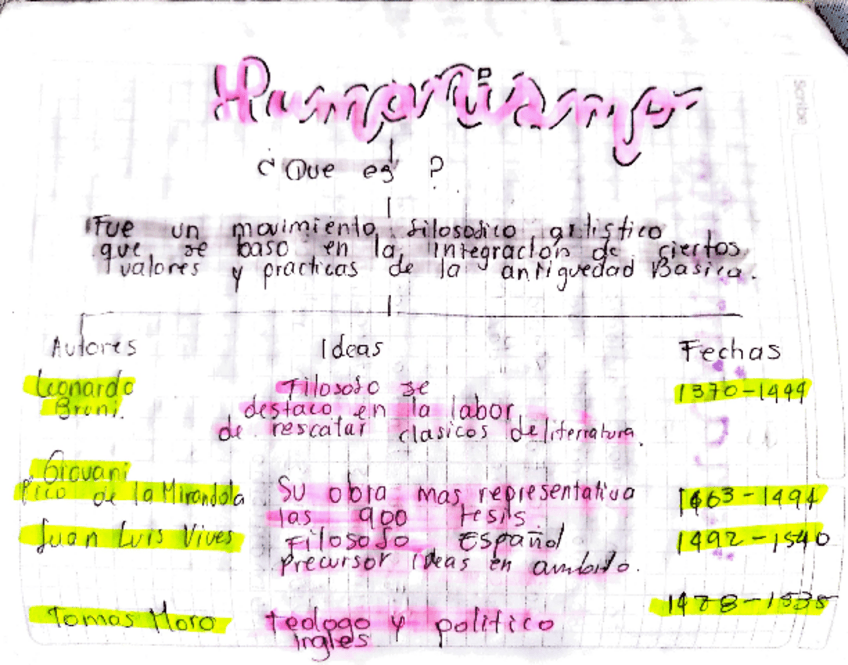 Humanismo
¿Que es?
Fue un movimiento, filosofico artistico
que se baso en la integración de ciertos
valores y practicas de la antiguedad Basica.
Autores Ideas Fechas
Leonardo Filosofo se 1370-1444
Bruni. destaco en la labor
de rescatar clasicos de literratura.
Giovani
Pico de la Mirandola Su obra mas representativa 1463-1494
las 900 tesis
Juan Luis Vives Filosofo Español 1492-1540
precursor ideas en ambito.
1478-1535
Tomas Moro teologo y politico
ingles
Scribe